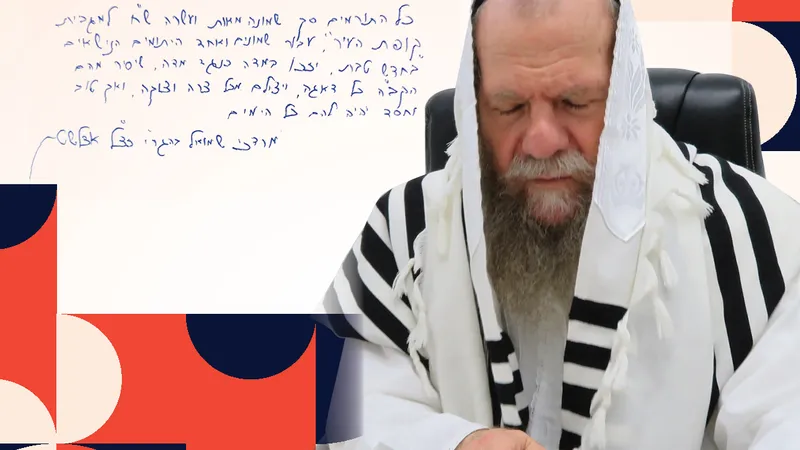 כל התורמים סך שמונה מאות ועשרה ש"ח למגבית
"קופת העיר", עבור שמונים ואחד היתומים הנישאים
בחדש טבת, יזכו במדה כנגד מדה, שיסיר מהם
הקב"ה כל דאגה, ויצילם מכל צרה וצוקה, ואך טוב
וחסד יהיה להם כל הימים
מרדכי שמואל בהגר"י זצ"ל